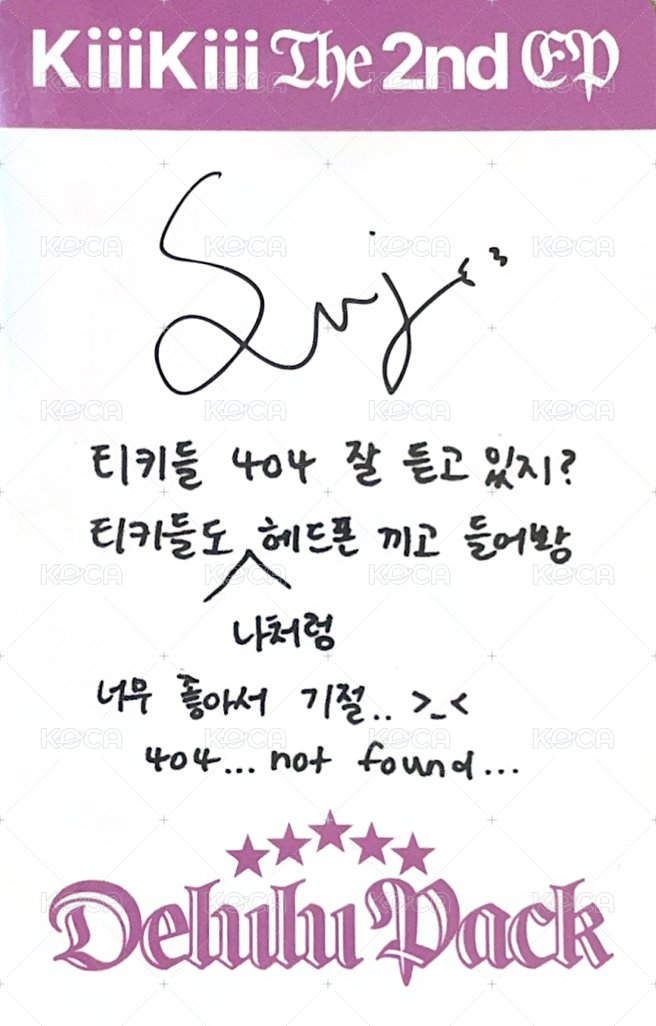 KiiiKiii The 2nd EP
Suji
티키들 404 잘 듣고 있지?
티키들도 헤드폰 끼고 들어봥
나처럼
너무 좋아서 기절.. >_<
404... not found...
Delulu Pack